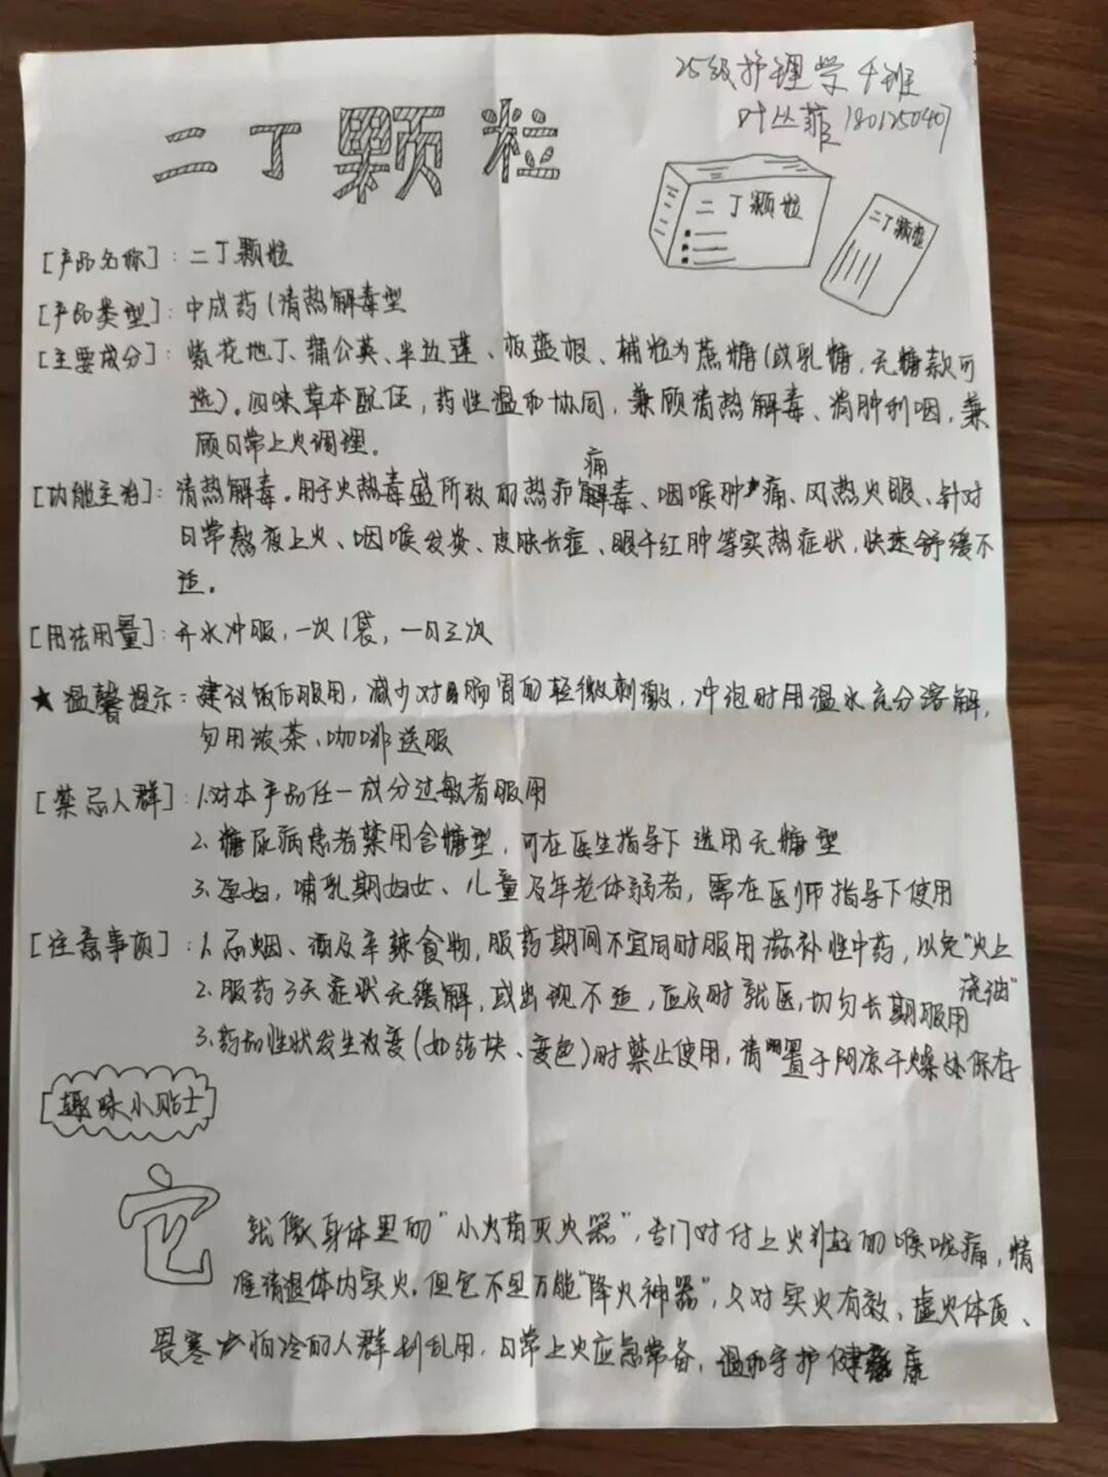 25级护理学4班
叶丛菲 1801250407
二丁颗粒
二丁颗粒
二丁颗粒
[产品名称]：二丁颗粒
[产品类型]：中成药(清热解毒型
[主要成分]：紫花地丁、蒲公英、半边莲、板蓝根、辅粒为蔗糖(或乳糖，无糖款可
选)。四味草本配伍，药性温和协同，兼顾清热解毒、消肿利咽，兼
顾日常上火调理。
[功能主治]：清热解毒。用于火热毒盛所致的热疖痛解毒、咽喉肿痛、风热火眼、针对
日常熬夜上火、咽喉发炎、皮肤长痘、眼干红肿等实热症状，快速舒缓不
适。
[用法用量]：开水冲服，一次1袋，一日三次
★温馨提示：建议饭后服用，减少对肠胃的轻微刺激，冲泡时用温水充分溶解，
勿用浓茶、咖啡送服
[禁忌人群]：1.对本产品任一成分过敏者服用
2.糖尿病患者禁用含糖型，可在医生指导下选用无糖型
3.孕妇，哺乳期妇女、儿童及年老体弱者，需在医师指导下使用
[注意事项]：1.忌烟、酒及辛辣食物，服药期间不宜同时服用滋补性中药，以免“火上
浇油”
2.服药3天症状无缓解，或出现不适，应及时就医，切勿长期服用
3.药品性状发生改变(如结块、变色)时禁止使用，请置于阴凉干燥处保存
[趣味小贴士]
它就像身体里的“小火苗灭火器”，专门对付上火引起的喉咙痛，精
准清退体内实火。但它不是万能“降火神器”，只对实火有效，虚火体质、
畏寒怕冷的人群别乱用，日常上火应急常备，温和守护健康